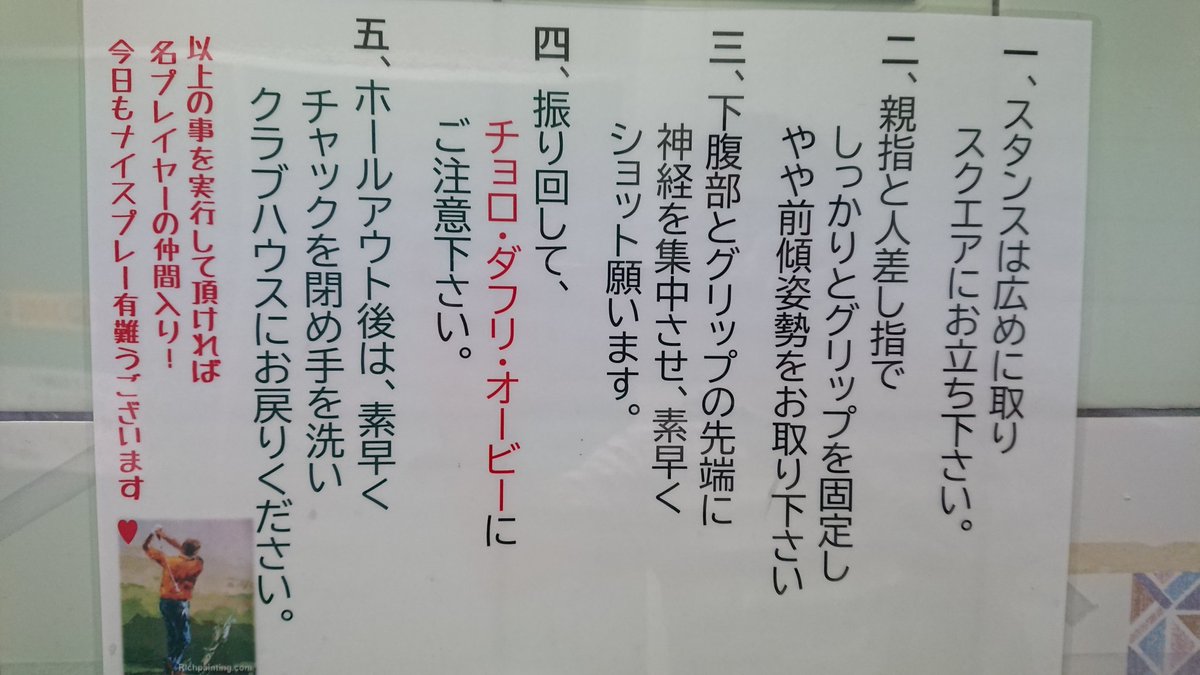 一、スタンスは広めに取り
スクエアにお立ち下さい。
二、親指と人差し指で
しっかりとグリップを固定し
やや前傾姿勢をお取り下さい
三、下腹部とグリップの先端に
神経を集中させ、素早く
ショット願います。
四、振り回して、
チョロ・ダフリ・オービーに
ご注意下さい。
五、ホールアウト後は、素早く
チャックを閉め手を洗い
クラブハウスにお戻りください。
以上の事を実行して頂ければ
名プレイヤーの仲間入り！
今日もナイスプレー有難うございます♥
Richpainting.com